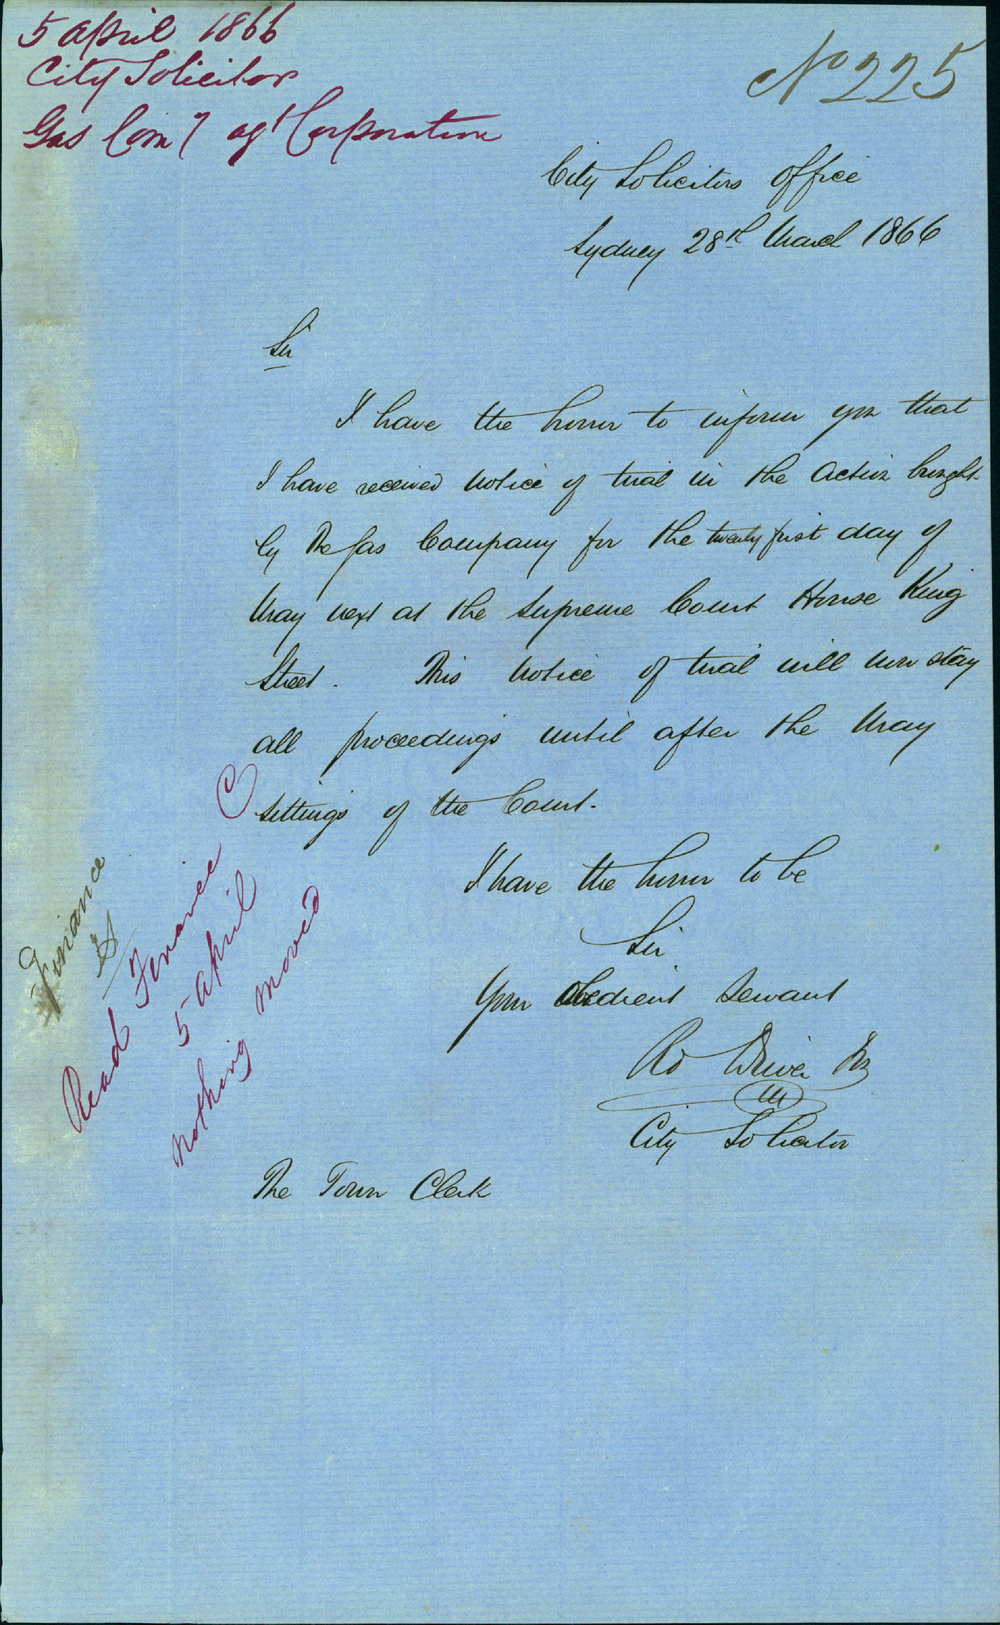 5 April 1866
City Solicitor
Gas Comy agt Corporation
No 225
City Solicitors Office
Sydney 28th March 1866
Sir
I have the honor to inform you that
I have received notice of trial in the Action brought
by the Gas Company for the twenty first day of
May next at the Supreme Court House King
Street. This notice of trial will now stay
all proceedings until after the May
sittings of the Court.
I have the honor to be
Sir
Your Obedient Servant
Rd Driver
City Solicitor
The Town Clerk
Finance
Read Finance C
5 April
nothing moved